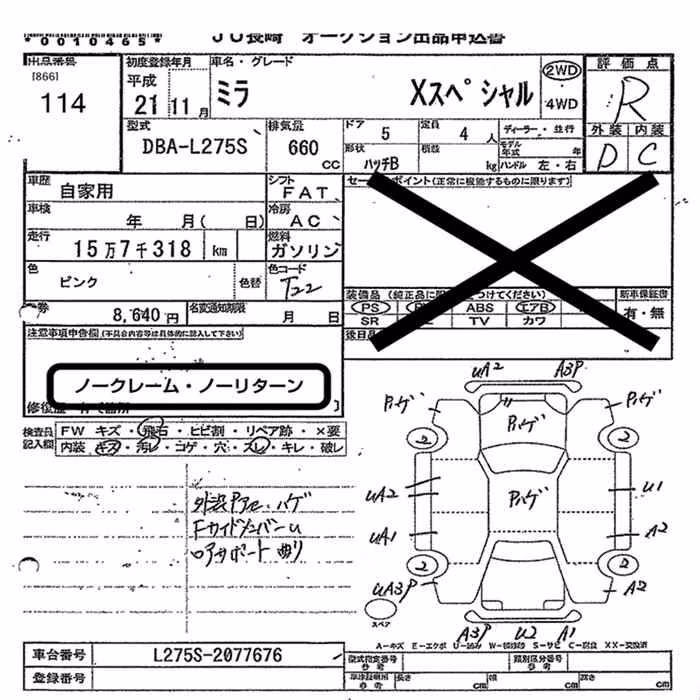 *0010465*
JU長崎 オークション出品申込書
出品番号
[866]
114
初度登録年月
平成
21 11 月
車名・グレード
ミラ Xスペシャル
2WD
4WD
評価点
R
外装 内装
D C
型式
DBA-L275S
排気量
660
CC
ドア 5
定員 4 人
形状
ハッチB
積載
kg
ディーラー・並行
モデル年式 年
ハンドル 左・右
車歴
自家用
シフト
FAT
車検
年 月( 日)
冷房
AC
走行
15万7千318 km
燃料
ガソリン
色
ピンク
色替
色コード
T22
券 8,640円
名変通知期限
月 日
セールスポイント(正常に機能するものに限ります)
装備品
PS
ABS
エアB
SR
TV
カワ
新車保証書
有・無
後日品
注意事項申告欄(不具合内容等は具体的に記入して下さい)
ノークレーム・ノーリターン
検査員記入欄
FW キズ・飛石・ヒビ割・リペア跡・×要
内装 キズ・汚レ・コゲ・穴・スレ・キレ・破レ
外装アセ、ハゲ
ロアサポート曲り
UA2 A3P
Pハゲ Pハゲ Pハゲ
2 2
UA2 Pハゲ U1
UA1 A2
2 2
UA3P A2
スペア
A3P U2 A1
A-キズ E-エクボ U-凹み W-補修跡 S-サビ C-腐食 XX-交換済
車台番号
L275S-2077676
登録番号
型式指定番号
参考
類別区分番号
参考
車庫証明用
参考
長さ cm
幅 cm
高さ cm